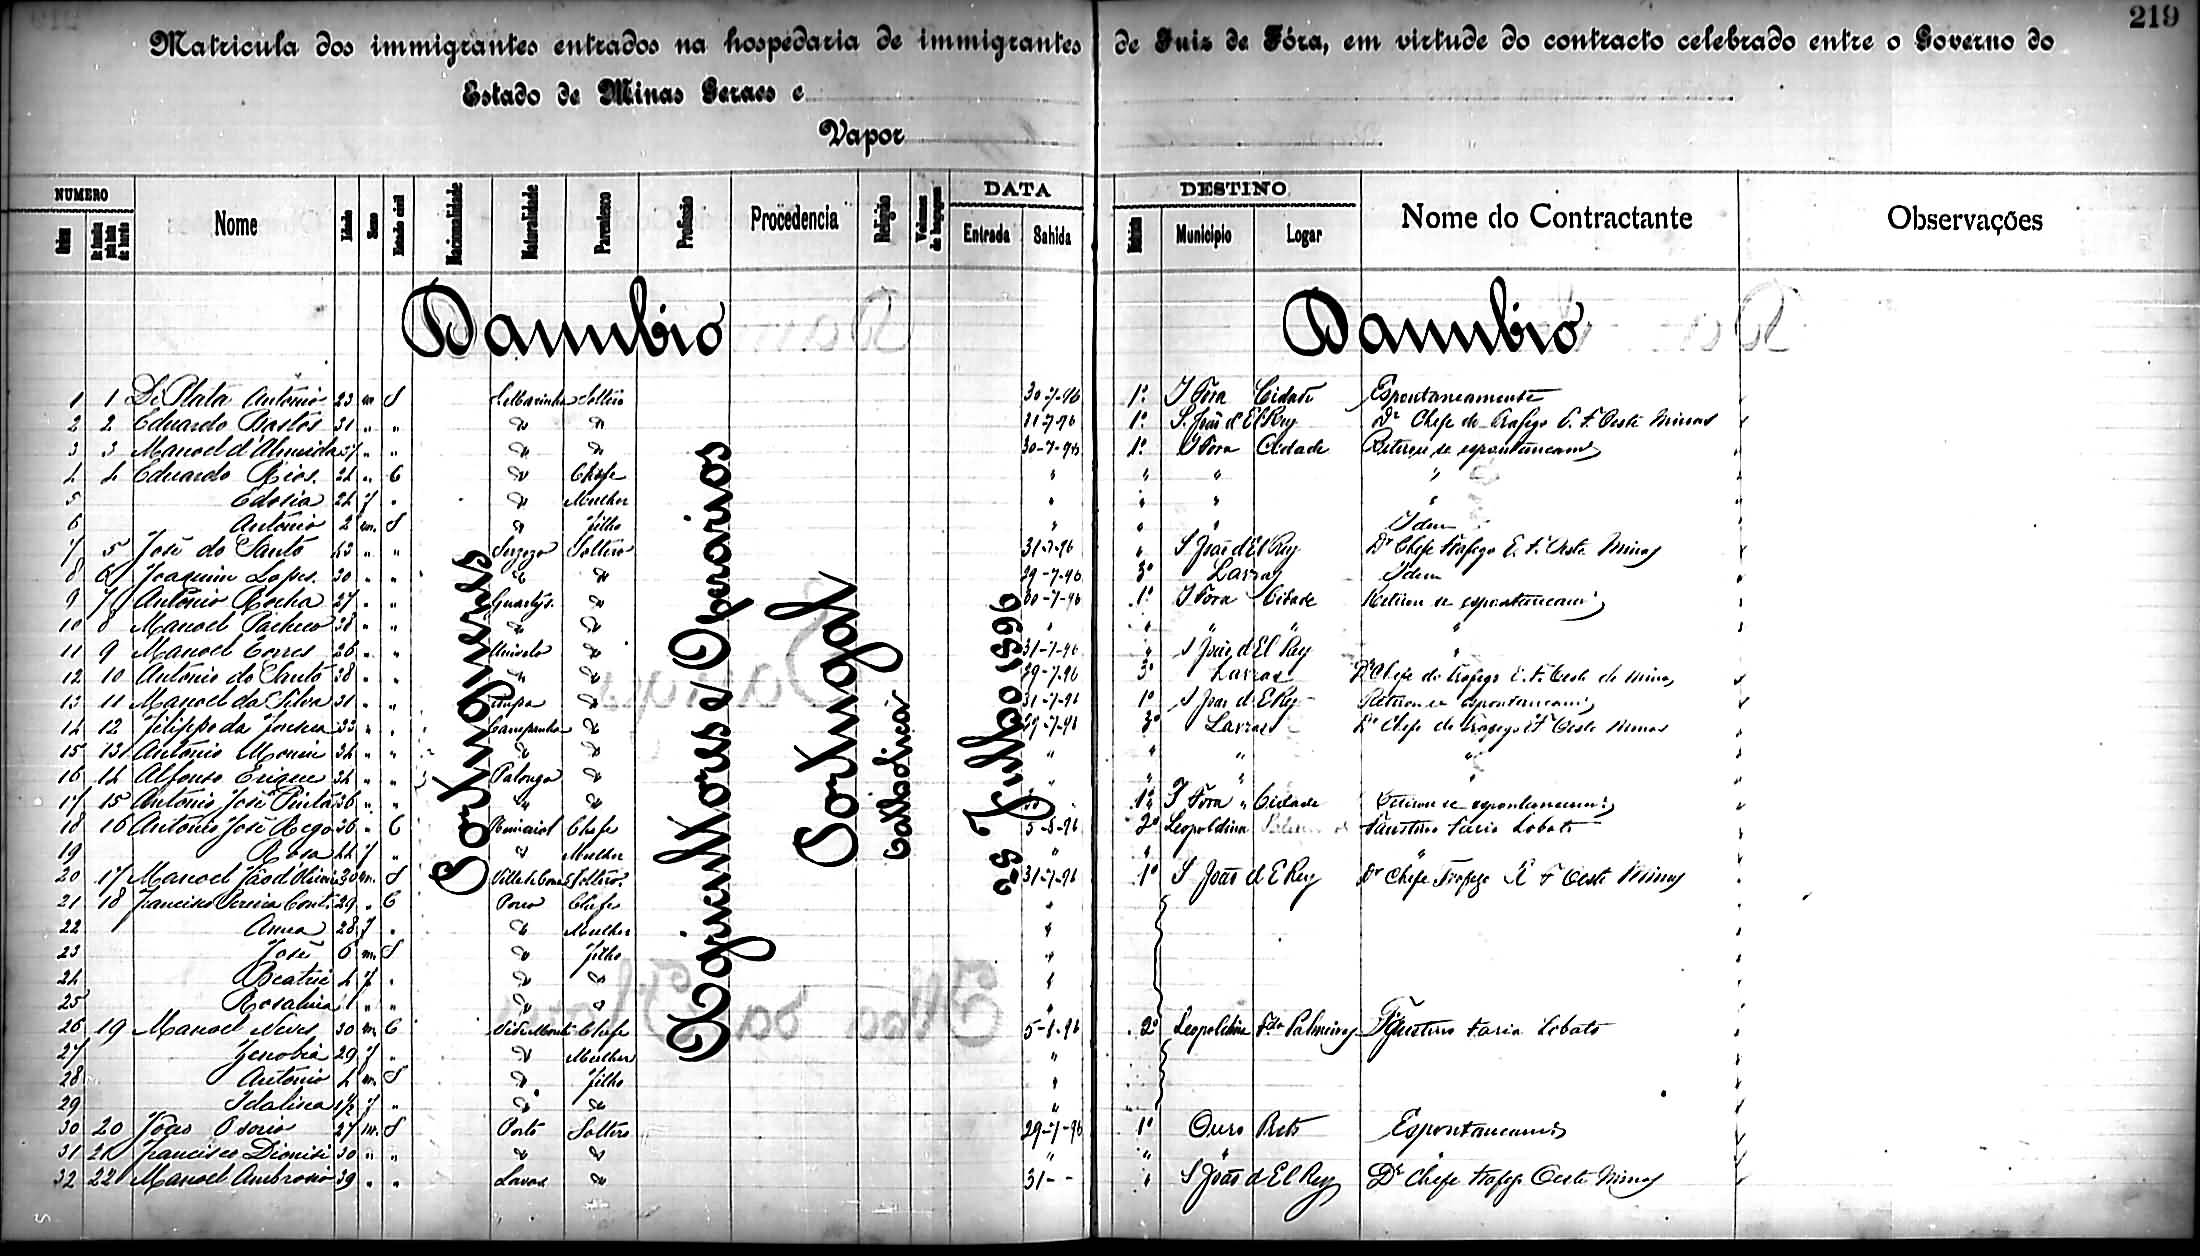 219
Matricula dos immigrantes entrados na hospedaria de immigrantes de Juiz de Fóra, em virtude do contracto celebrado entre o Governo do
Estado de Minas Geraes e
Vapor
NUMERO Nome Idade Sexo Estado civil Nacionalidade Naturalidade Parentesco Profissão Procedencia Religião Volumes de bagagem DATA DESTINO Nome do Contractante Observações
Ordem de familia Entrada Sahida Municipio Logar
Danubio Danubio
Portuguezes
Agricultores e Operarios
Portugal
Catholica
28 Julho 1896
1 1 De Plata Antonio 23 m S Solteiro 30-7-96 1º J Fora Cidade Espontaneamente
2 2 Eduardo Bastos 31 " " " " 11-7-96 1º S. João d'El Rey Dr Chefe do Trafego E. F. Oeste Minas
3 3 Manoel d'Almeida 37 " " " " 30-7-96 1º J Fora Cidade Retirou se espontaneam
4 4 Eduardo Rios 24 " C " Chefe " " " "
5 24 f " " Mulher " " " "
6 Antonio 2 m. S " filho " " " Idem
7 5 José do Santo 23 " " Solteiro 31-7-96 " S João d'El Rey Dr Chefe Trafego E. F. Oeste Minas
8 6 Joaquim Lopes 30 " " " " 29-7-96 3º Lavras Idem
9 7 Antonio Rocha 27 " " " 30-7-96 1º J Fora Cidade Retirou se espontaneam
10 8 Manoel Pacheco 28 " " " " " " " "
11 9 Manoel Torres 26 " " " 31-7-96 " S João d'El Rey "
12 10 Antonio do Santo 38 " " " " 29-7-96 3º Lavras Dr Chefe do Trafego E. F. Oeste de Minas
13 11 Manoel da Silva 31 " " " 31-7-96 1º S João d E Rey Retirou se espontaneam
14 12 Filippe da Fonseca 33 " " Campanha " 29-7-96 3º Lavras Dr Chefe do Trafego E F Oeste Minas
15 13 Antonio 34 " " " " " " " "
16 14 Alfonso 34 " " " " " " "
17 15 Antonio José Pinto 36 " " " " 1º J Fora Cidade Retirou se espontaneam
18 16 Antonio José Rego 36 " C Chefe 5-8-96 2º Leopoldina Faustino Faria Lobato
19 Rosa 44 f " " Mulher " "
20 17 Manoel João d'Oliveira 30 m. S Solteiro 31-7-96 1º S João d E Rey Dr Chefe Trafego E F Oeste Minas
21 18 Francisco Pereira 29 " C Chefe "
22 Anna 28 f " " Mulher "
23 José 6 m S " filho "
24 Beatriz 4 f " " " "
25 Rosalina 1 " " " " "
26 19 Manoel Neves 30 m C Chefe 5-8-96 2º Leopoldina Fda Palmeiras Faustino Faria Lobato
27 Zenobia 29 f " " Mulher "
28 Antonio 4 m. S " filho "
29 Idalisca 1½ f " " " "
30 20 João Osorio 27 m. S Porto Solteiro 29-7-96 1º Ouro Preto Espontaneam
31 21 Francisco Dionisi 30 " " " " " " "
32 22 Manoel Ambrosio 39 " " " 31-- " S João d El Rey Dr Chefe Trafego Oeste Minas